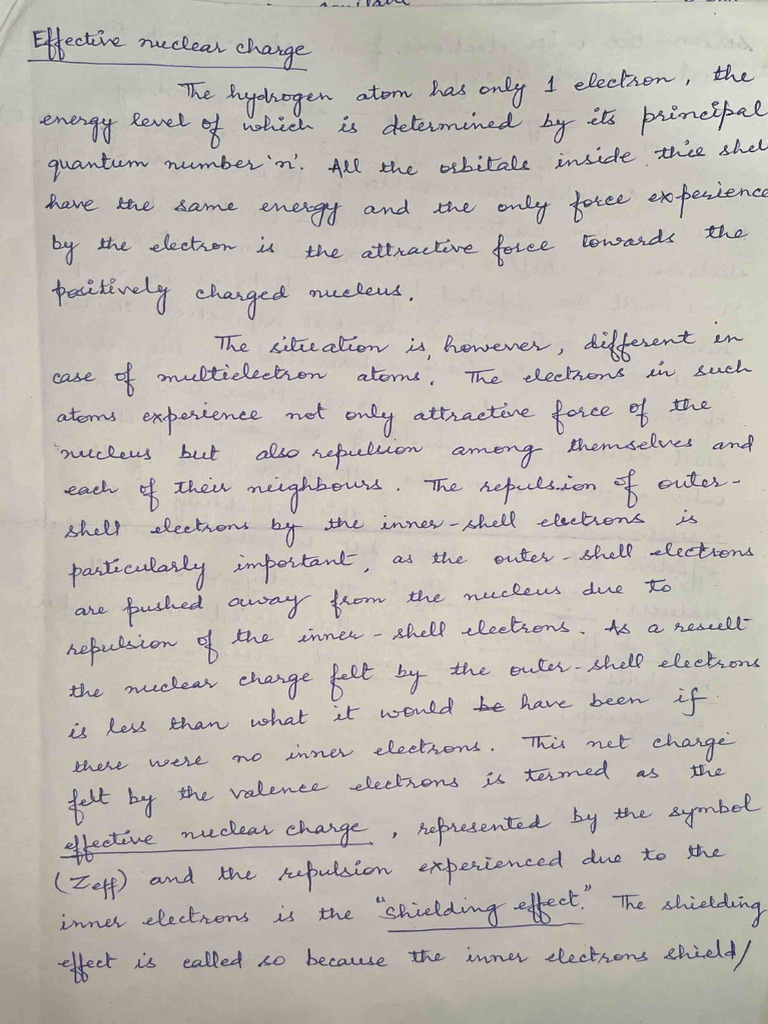 Effective nuclear charge
The hydrogen atom has only 1 electron, the
energy level of which is determined by its principal
quantum number 'n'. All the orbitals inside this shel
have the same energy and the only force experience
by the electron is the attractive force towards the
positively charged nucleus.
The situation is, however, different in
case of multielectron atoms. The electrons in such
atoms experience not only attractive force of the
nucleus but also repulsion among themselves and
each of their neighbours. The repulsion of outer-
shell electrons by the inner-shell electrons is
particularly important, as the outer-shell electrons
are pushed away from the nucleus due to
repulsion of the inner-shell electrons. As a result
the nuclear charge felt by the outer-shell electrons
is less than what it would be have been if
there were no inner electrons. This net charge
felt by the valence electrons is termed as the
effective nuclear charge, represented by the symbol
(Zeff) and the repulsion experienced due to the
inner electrons is the "shielding effect." The shielding
effect is called so because the inner electrons shield/